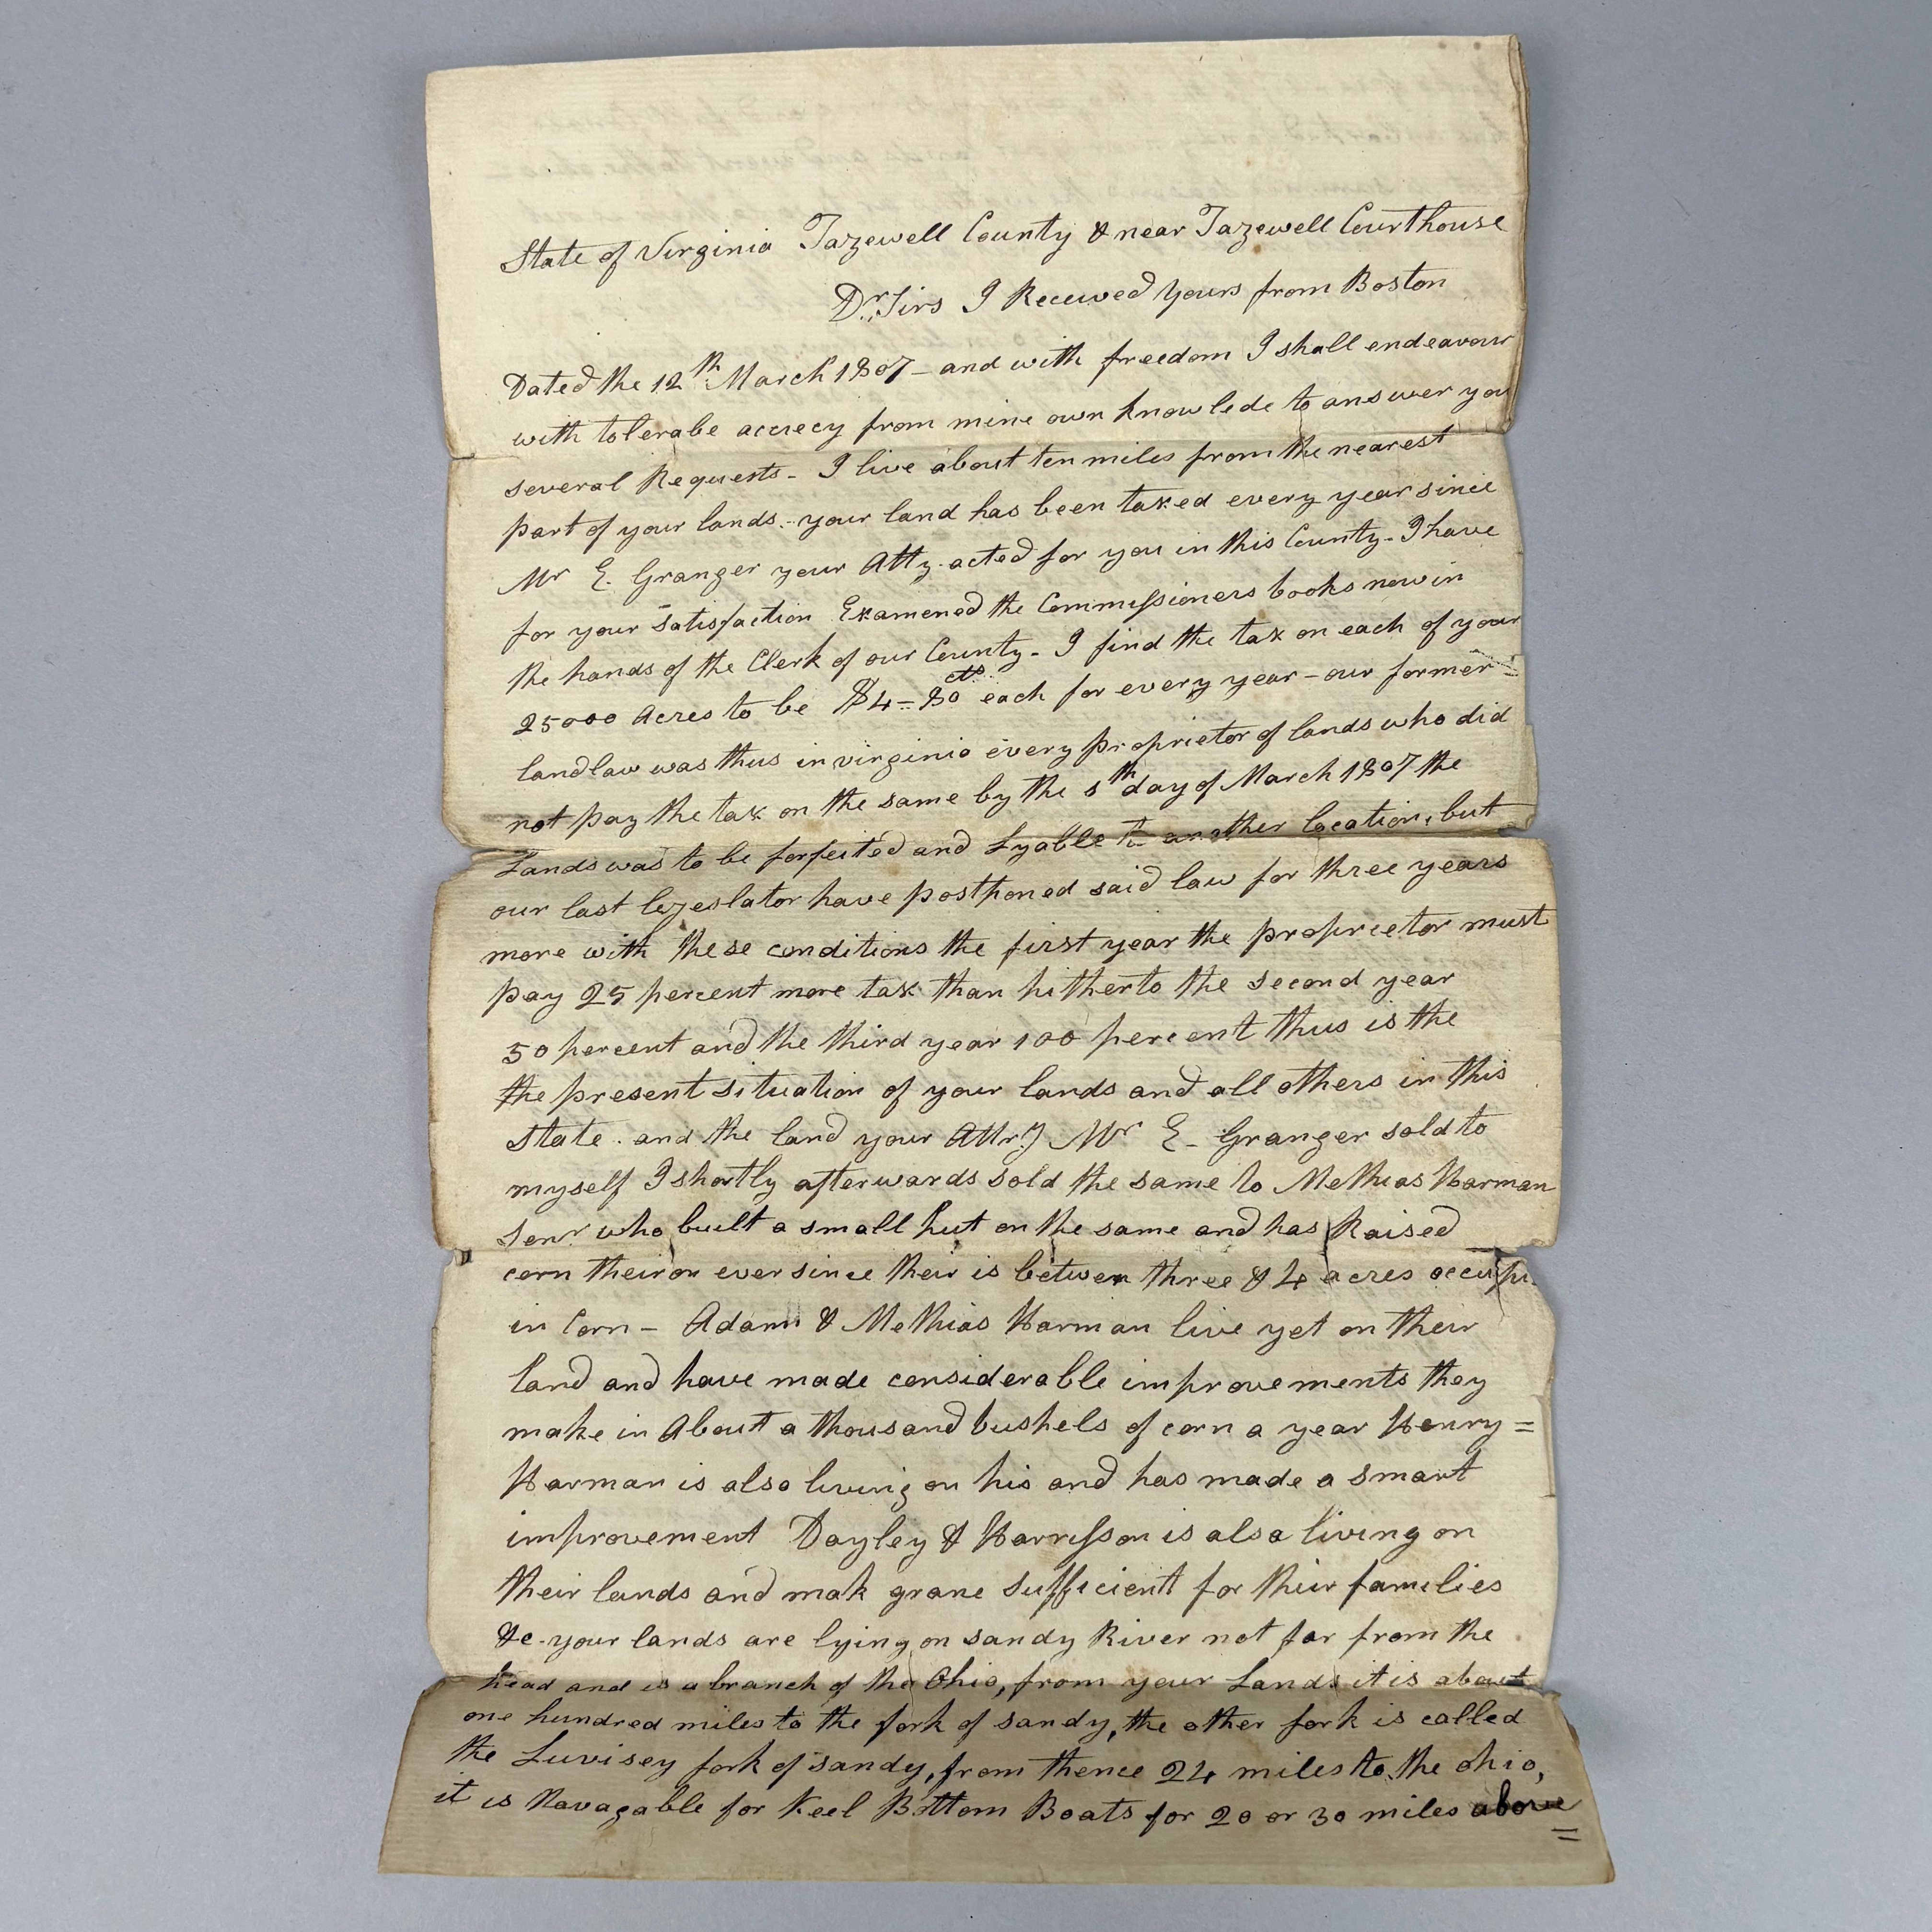 State of Virginia Tazewell County & near Tazewell Courthouse
Dr. Sirs I Received yours from Boston
Dated the 12th March 1807 - and with freedom I shall endeavour
with tolerabe accrecy from mine own knowlede to answer you
several Requests - I live about ten miles from the nearest
part of your lands - your land has been taxed every year since
Mr E. Granger your Atty. acted for you in this County - I have
for your Satisfaction Examened the Commissioners books now in
the hands of the Clerk of our County - I find the tax on each of your
25000 Acres to be $4-80 cts each for every year - our former
landlaw was thus in virginia every proprietor of lands who did
not pay the tax on the same by the 5th day of March 1807 the
Lands was to be forfeited and Lyable to another location, but
our last legeslator have postponed said law for three years
more with these conditions the first year the proprietor must
pay 25 percent more tax than hitherto the second year
50 percent and the third year 100 percent thus is the
the present situation of your lands and all others in this
State. and the land your Attry Mr E - Granger sold to
myself I shortly afterwards sold the same to Methias Harman
Senr who built a small hut on the same and has Raised
corn theiron ever since their is betwen three & 4 acres occupi
in Corn - Adam & Methias Harman live yet on their
land and have made considerable improvements they
make in About a thousand bushels of corn a year Henry =
Harman is also living on his and has made a smart
improvement Dayley & Harrisson is also living on
their lands and mak grane sufficient for their families
&c - your lands are lying on sandy River not far from the
head and is a branch of the Ohio, from your Lands it is about
one hundred miles to the fork of sandy, the other fork is called
the Luvisey fork of sandy, from thence 24 miles to the ohio,
it is Navagable for Keel Bottom Boats for 20 or 30 miles above =